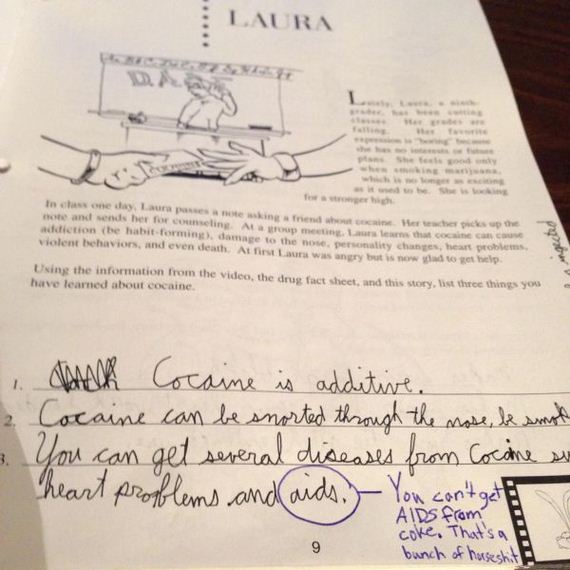 LAURA
Lately, Laura, a ninth-
grader, has been cutting
classes. Her grades are
falling. Her favorite
expression is "boring" because
she has no interests or future
plans. She feels good only
when smoking marijuana,
which is no longer as exciting
as it used to be. She is looking
for a stronger high.
In class one day, Laura passes a note asking a friend about cocaine. Her teacher picks up the
note and sends her for counseling. At a group meeting, Laura learns that cocaine can cause
addiction (be habit-forming), damage to the nose, personality changes, heart problems,
violent behaviors, and even death. At first Laura was angry but is now glad to get help.
Using the information from the video, the drug fact sheet, and this story, list three things you
have learned about cocaine.
1. Cocaine is additive.
2. Cocaine can be snorted through the nose, be smok
3. You can get several diseases from Cocine su
heart proflems and aids.
You can't get
AIDS from
coke. That's a
bunch of horseshit
ingected
9